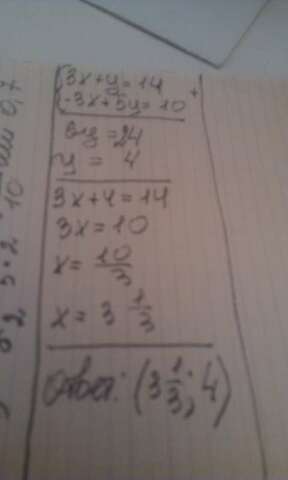 {3x+y=14
{-3x+5y=10 +
6y=24
y = 4
3x+4=14
3x=10
x=10/3
x=3 1/3
Ответ: (3 1/3; 4)